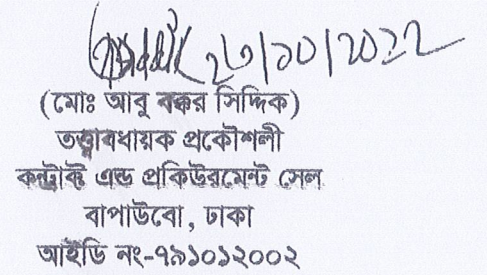 ২৩/১০/২০২২
(মোঃ আবু বক্কর সিদ্দিক)
তত্ত্বাবধায়ক প্রকৌশলী
কন্ট্রাক্ট এন্ড প্রকিউরমেন্ট সেল
বাপাউবো, ঢাকা
আইডি নং-৭৯১০১২০০২